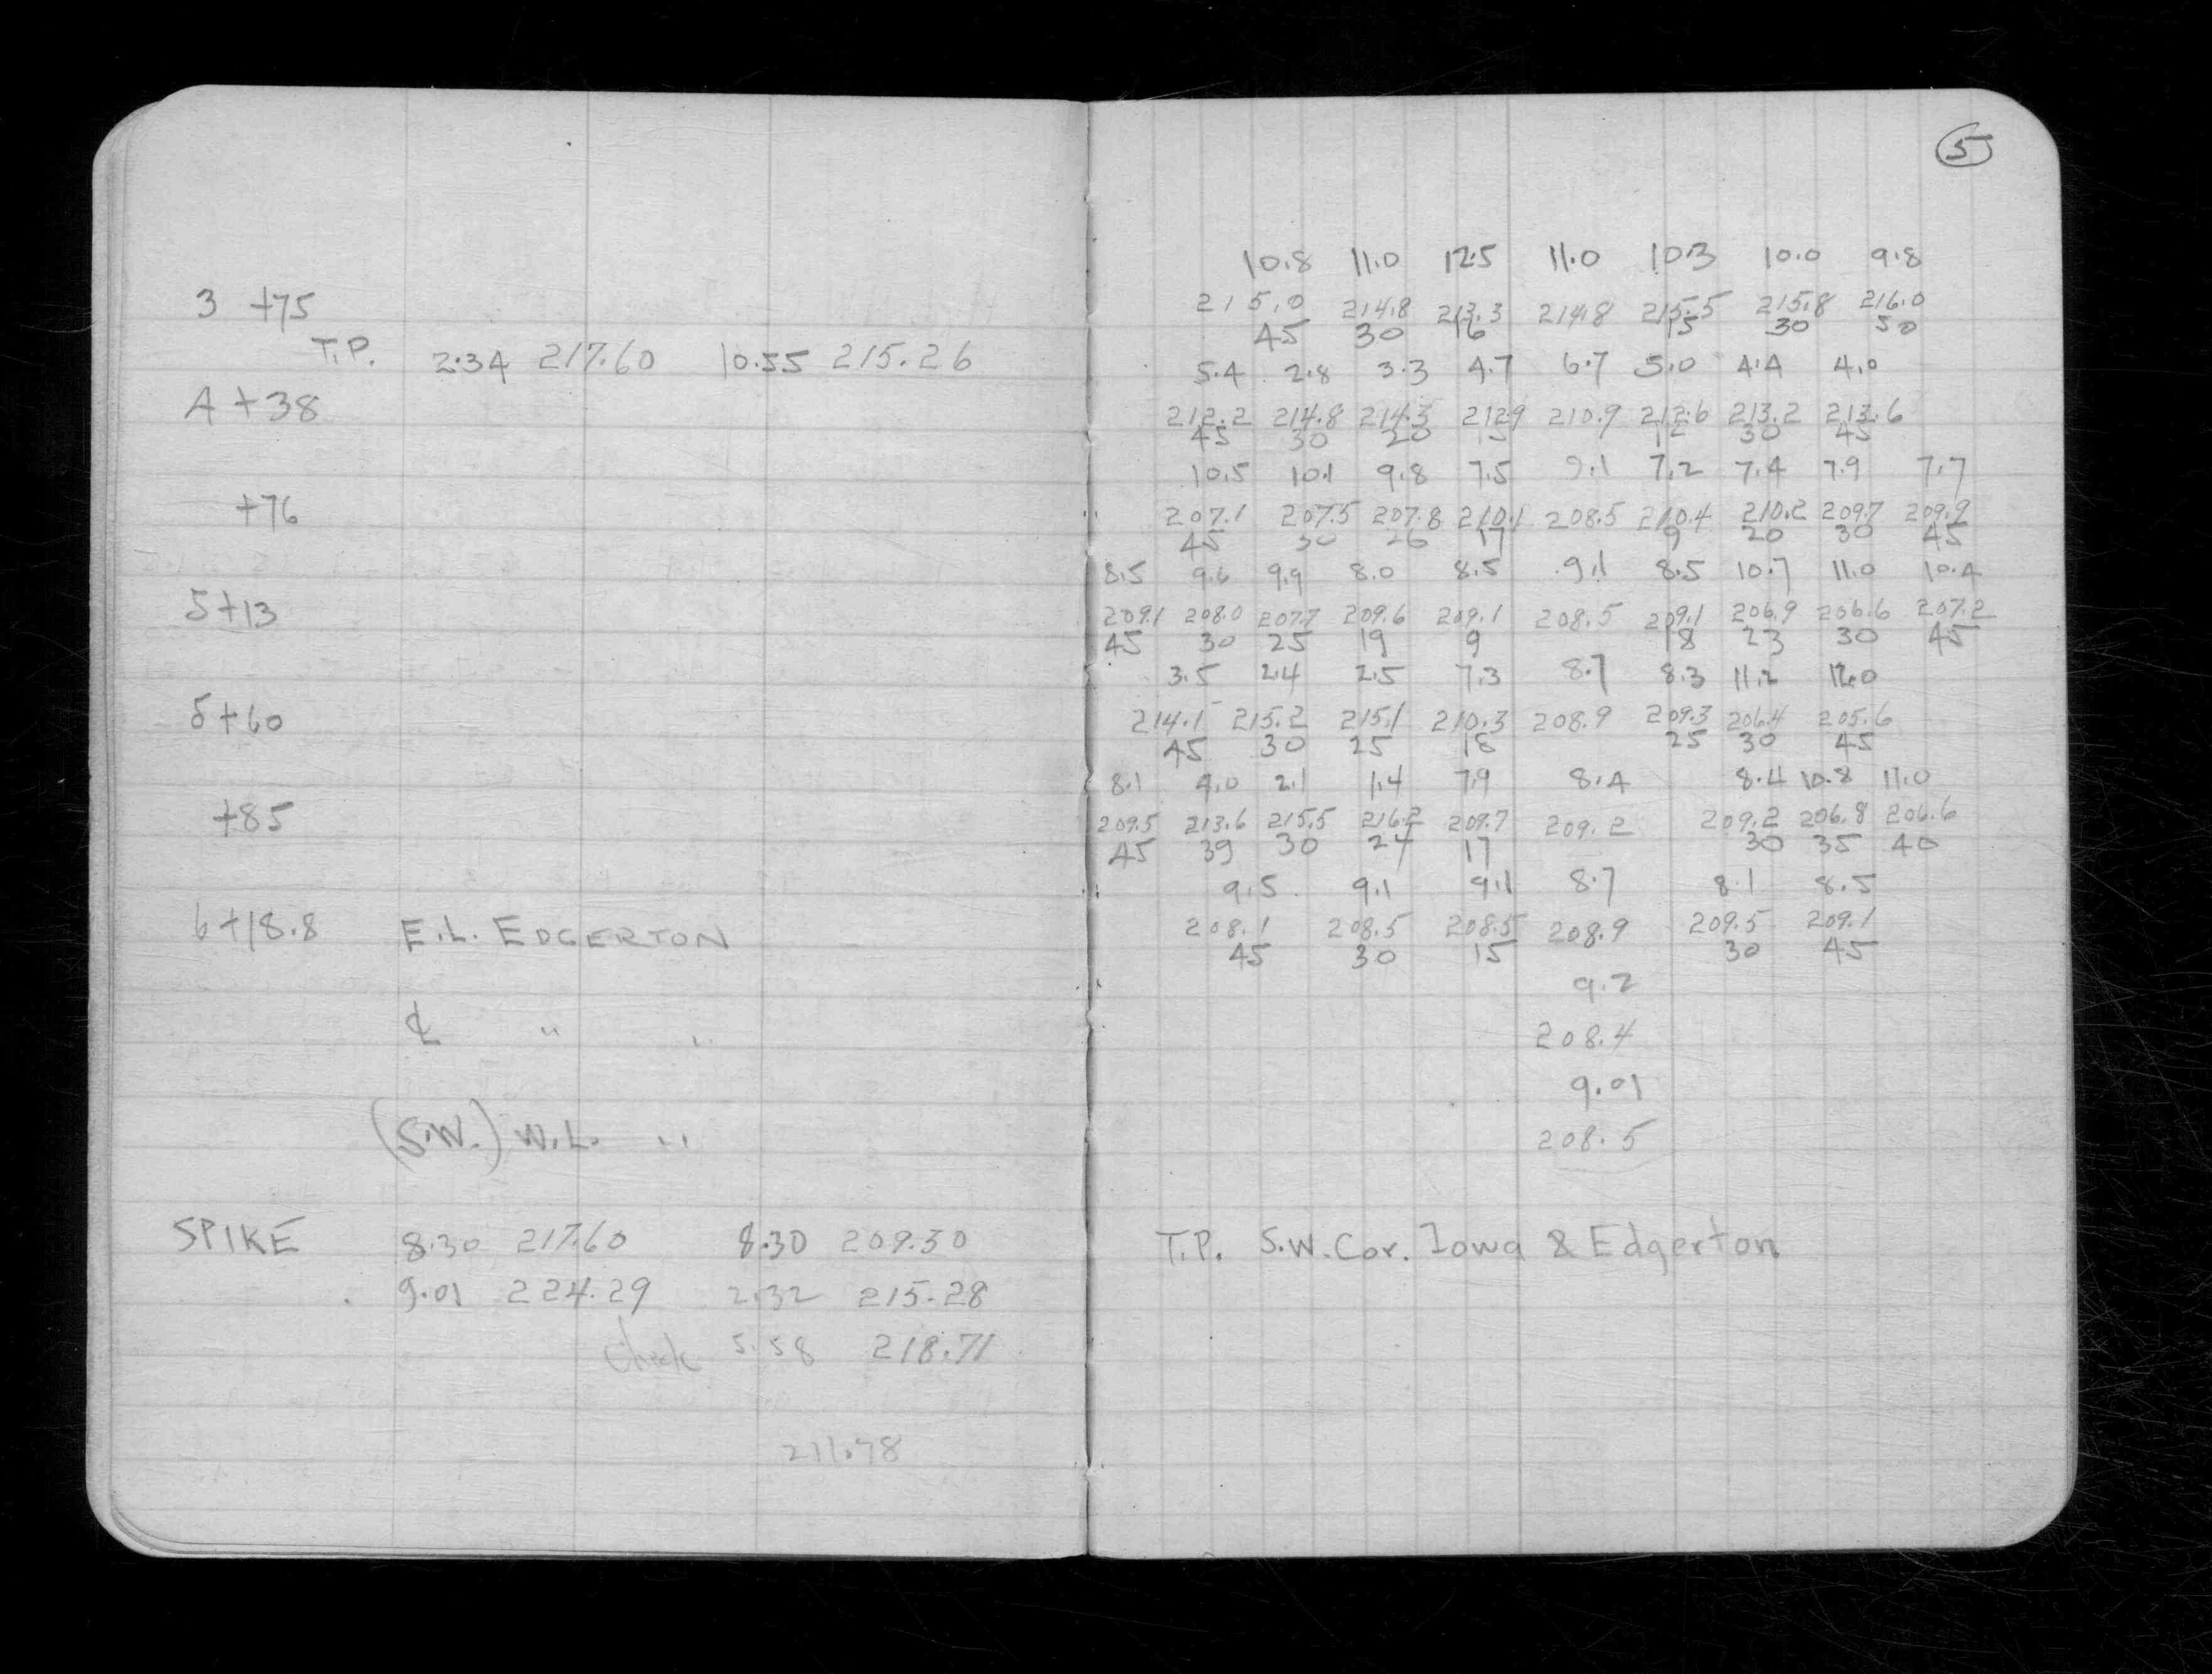 5
10.8 11.0 12.5 11.0 10.3 10.0 9.8
3 +75 215.0 214.8 213.3 214.8 215.5 215.8 216.0
45 30 16 15 30 50
T.P. 2.34 217.60 10.55 215.26 5.4 2.8 3.3 4.7 6.7 5.0 4.4 4.0
4 +38 212.2 214.8 214.3 212.9 210.9 212.6 213.2 213.6
45 30 20 15 30 45
10.5 10.1 9.8 7.5 9.1 7.2 7.4 7.9 7.7
+76 207.1 207.5 207.8 210.1 208.5 210.4 210.2 209.7 209.9
45 30 26 17 9 20 30 45
8.5 9.6 9.9 8.0 8.5 9.1 8.5 10.7 11.0 10.4
5+13 209.1 208.0 207.7 209.6 209.1 208.5 209.1 206.9 206.6 207.2
45 30 25 19 9 18 23 30 45
3.5 2.4 2.5 7.3 8.7 8.3 11.2 12.0
5+60 214.1 215.2 215.1 210.3 208.9 209.3 206.4 205.6
45 30 25 18 25 30 45
8.1 4.0 2.1 1.4 7.9 8.4 8.4 10.8 11.0
+85 209.5 213.6 215.5 216.2 209.7 209.2 209.2 206.8 206.6
45 39 30 24 17 30 35 40
9.5 9.1 9.1 8.7 8.1 8.5
6+18.8 E.L. EDGERTON 208.1 208.5 208.5 208.9 209.5 209.1
45 30 15 30 45
9.2
℄ " " 208.4
9.01
(S.W.) W.L. " 208.5
SPIKE 8.30 217.60 8.30 209.30 T.P. S.W. Cor. Iowa & Edgerton
9.01 224.29 2.32 215.28
Check 5.58 218.71
211.78